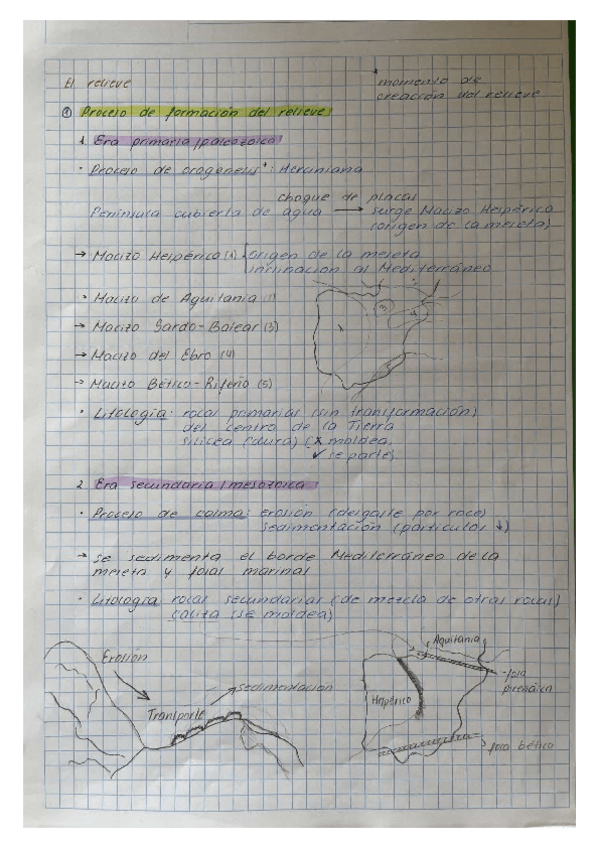 El relieve
* momento de
creación del relieve
① Proceso de formación del relieve
1. Era primaria/paleozoica
· Proceso de orogénesis*: Herciniana
choque de placas
Península cubierta de agua → surge Macizo Hespérico
(origen de la meseta)
→ Macizo Hespérico (1) { origen de la meseta
inclinación al Mediterráneo
→ Macizo de Aquitania
→ Macizo Sardo-Balear (3)
→ Macizo del Ebro (4)
→ Macizo Bético-Rifeño (5)
· Litología: rocas primarias (sin transformación)
del centro de la Tierra
silícea (dura) (x moldea,
✓ se parte)
2. Era secundaria/mesozoica
· Proceso de calma: erosión (desgaste por roce)
sedimentación (partículas ↓)
→ se sedimenta el borde Mediterráneo de la
meseta y fosas marinas
· Litología rocas secundarias (de mezcla de otras rocas)
caliza (se moldea)
Erosión
Transporte
sedimentación
Aquitania
Hespérico
fosa
pirenáica
fosa bético